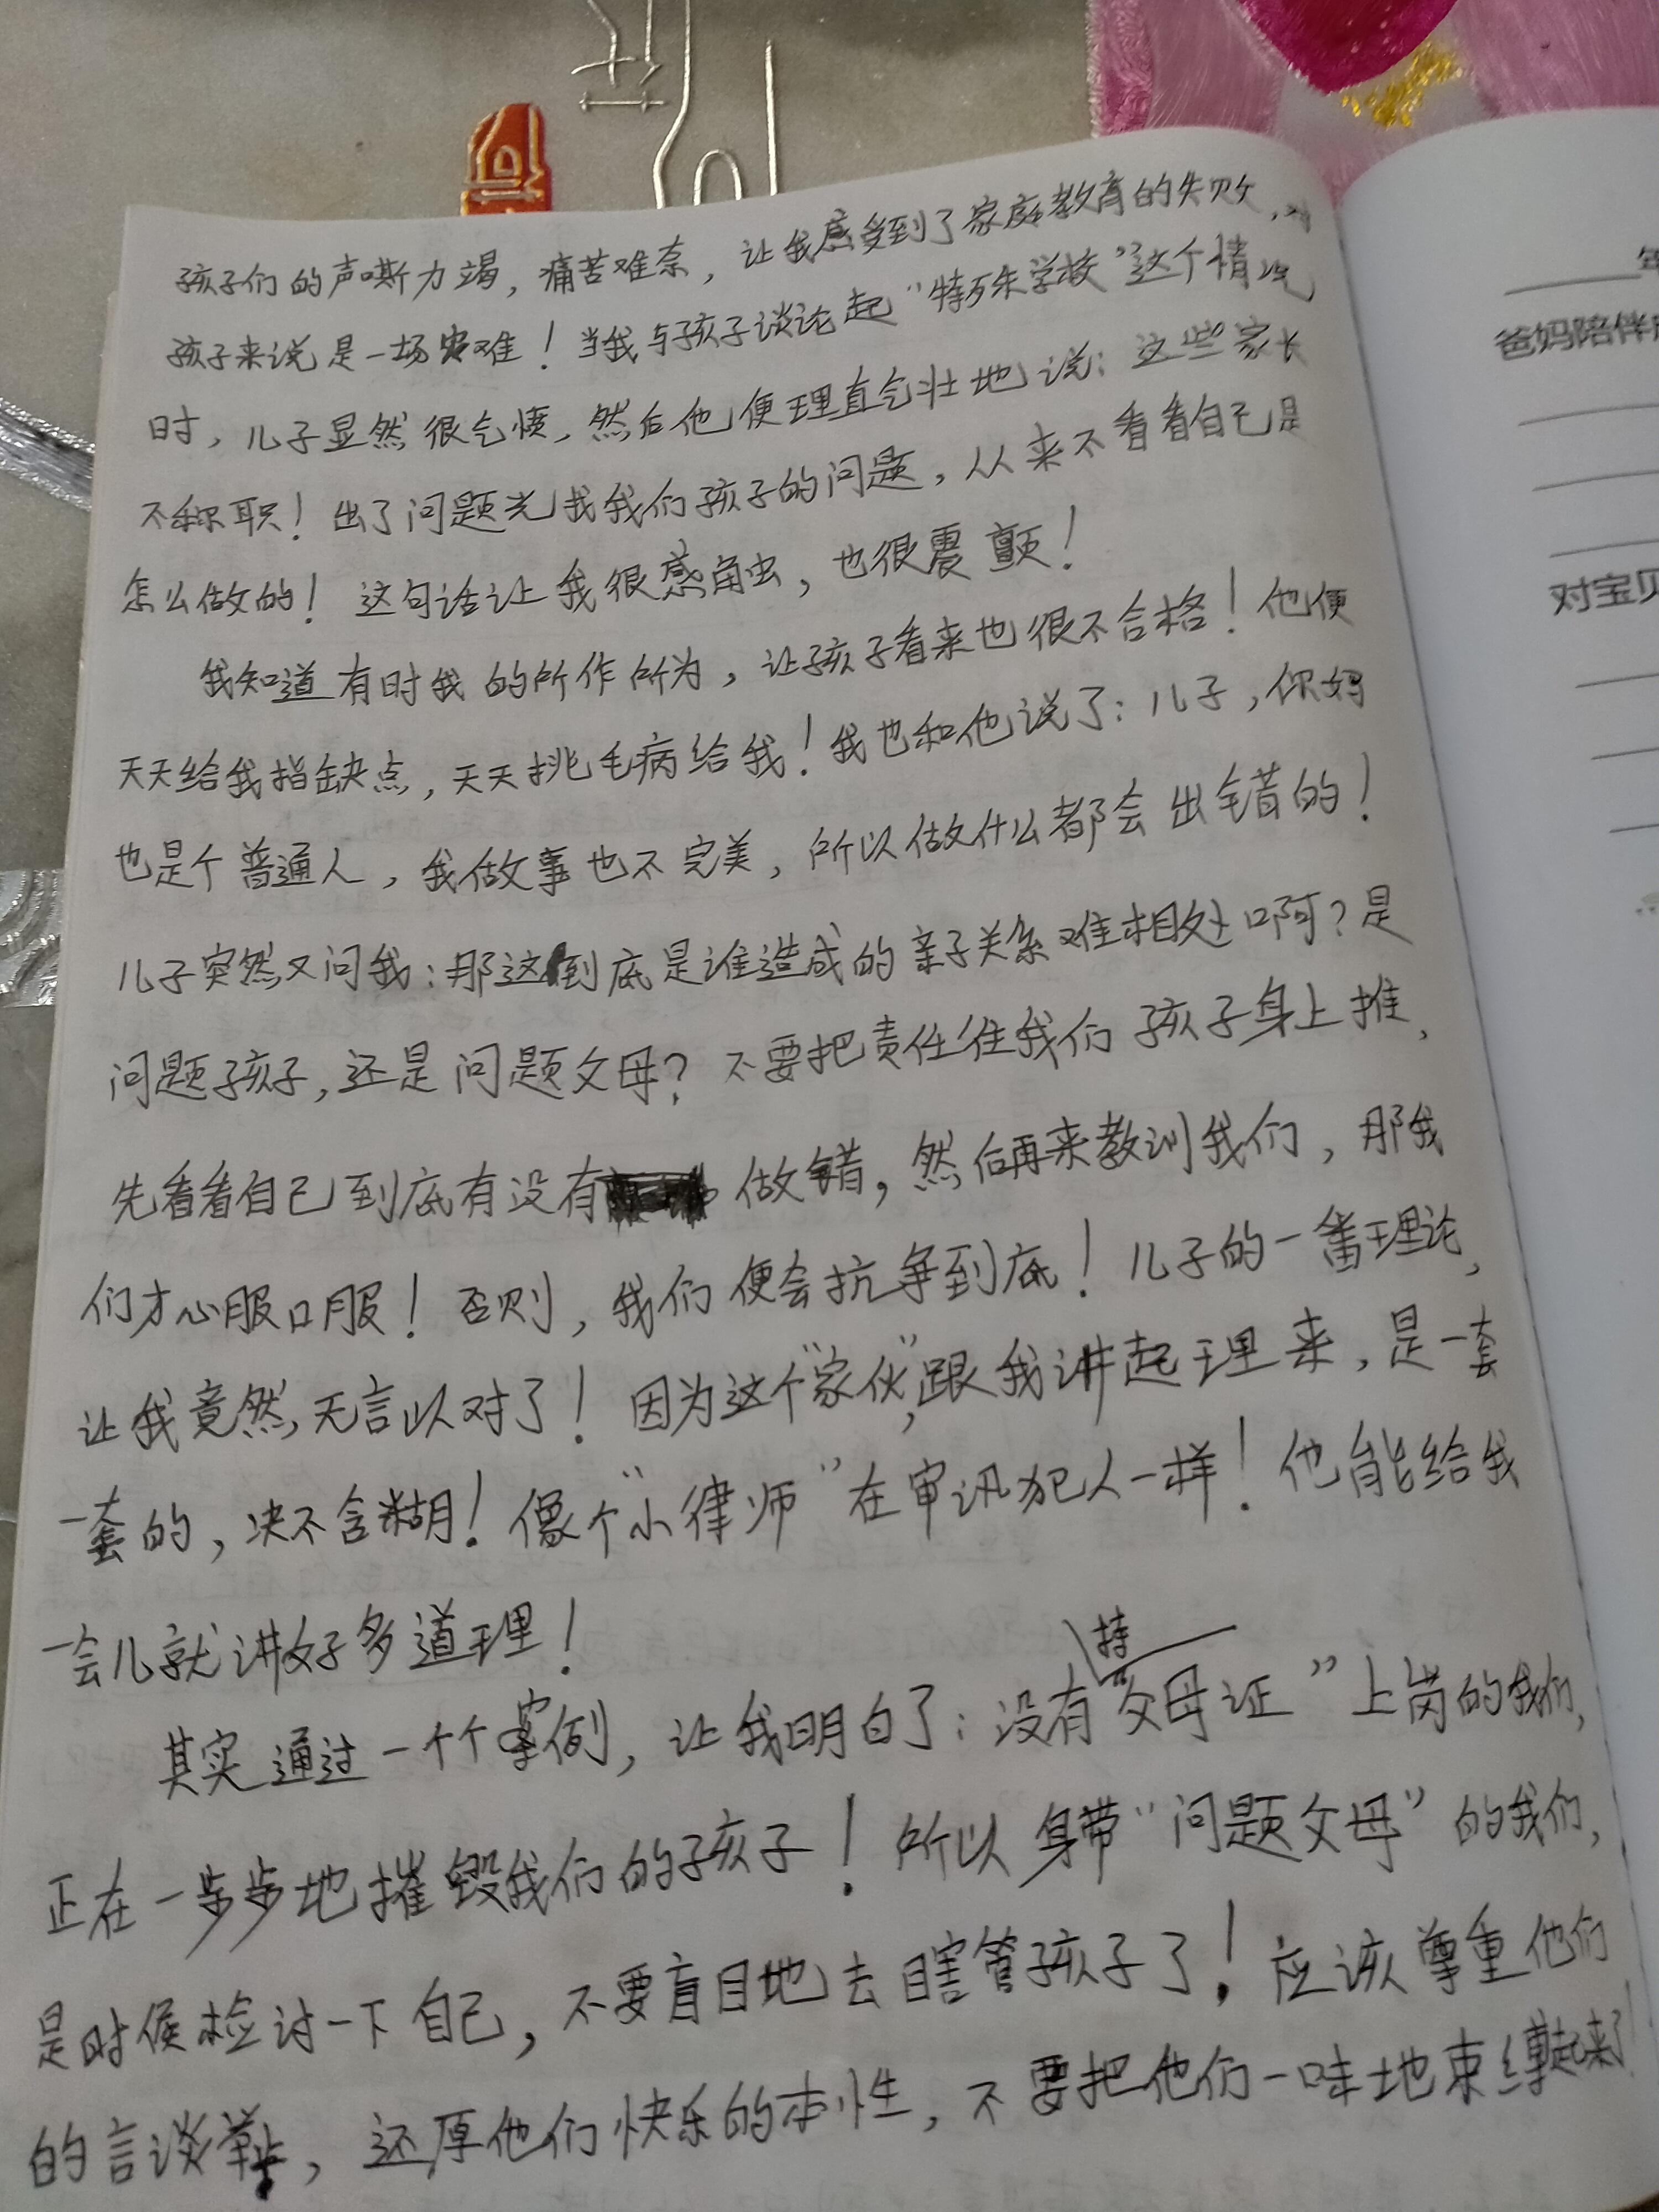 孩子们的声嘶力竭，痛苦难奈，让我感受到了家庭教育的失败，对
孩子来说是一场灾难！当我与孩子谈论起“特殊学校”这个情况
时，儿子显然很气愤，然后他便理直气壮地说：这些“家长
不称职！出了问题光找我们孩子的问题，从来不看看自己是
怎么做的！这句话让我很感触，也很震颤！
我知道有时我的所作所为，让孩子看来也很不合格！他便
天天给我指缺点，天天挑毛病给我！我也和他说了：儿子，你妈
也是个普通人，我做事也不完美，所以做什么都会出错的！
儿子突然又问我：那这到底是谁造成的亲子关系难相处啊？是
问题孩子，还是问题父母？不要把责任往我们孩子身上推，
先看看自己到底有没有做错，然后再来教训我们，那我
们才心服口服！否则，我们便会抗争到底！儿子的一番理论，
让我竟然，无言以对了！因为这个“家伙”，跟我讲起理来，是一套
一套的，决不含糊！像个“小律师”在审讯犯人一样！他能给我
一会儿就讲好多道理！
其实通过一个个案例，让我明白了：没有持“父母证”上岗的我们，
正在一步步地摧毁我们的孩子！所以身带“问题父母”的我们，
是时候检讨一下自己，不要盲目地去瞎管孩子了！应该尊重他们
的言谈，还原他们快乐的本性，不要把他们一味地束缚起来了！
年
爸妈陪伴
对宝贝